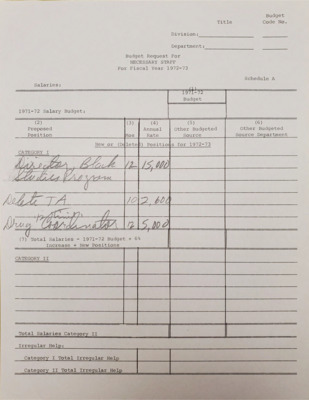 Budget
Title Code No.
Division:
Department:
Budget Request For
NECESSARY STAFF
For Fiscal Year 1972-73
Schedule A
Salaries:
Budget
1971-72 Salary Budget:
(2) (3) (4) (5) (6)
Proposed Position Mos Annual Rate Other Budgeted Source Other Budgeted Source Department
New or (Deleted) Positions for 1972-73
CATEGORY I
Director, Black 12 15,000
Studies Program
Delete TA 10 2,600
Drug Coordinator 5,000
(7) Total Salaries = 1971-72 Budget + 6%
Increase + New Positions
CATEGORY II
Total Salaries Category II
Irregular Help:
Category I Total Irregular Help
Category II Total Irregular Help